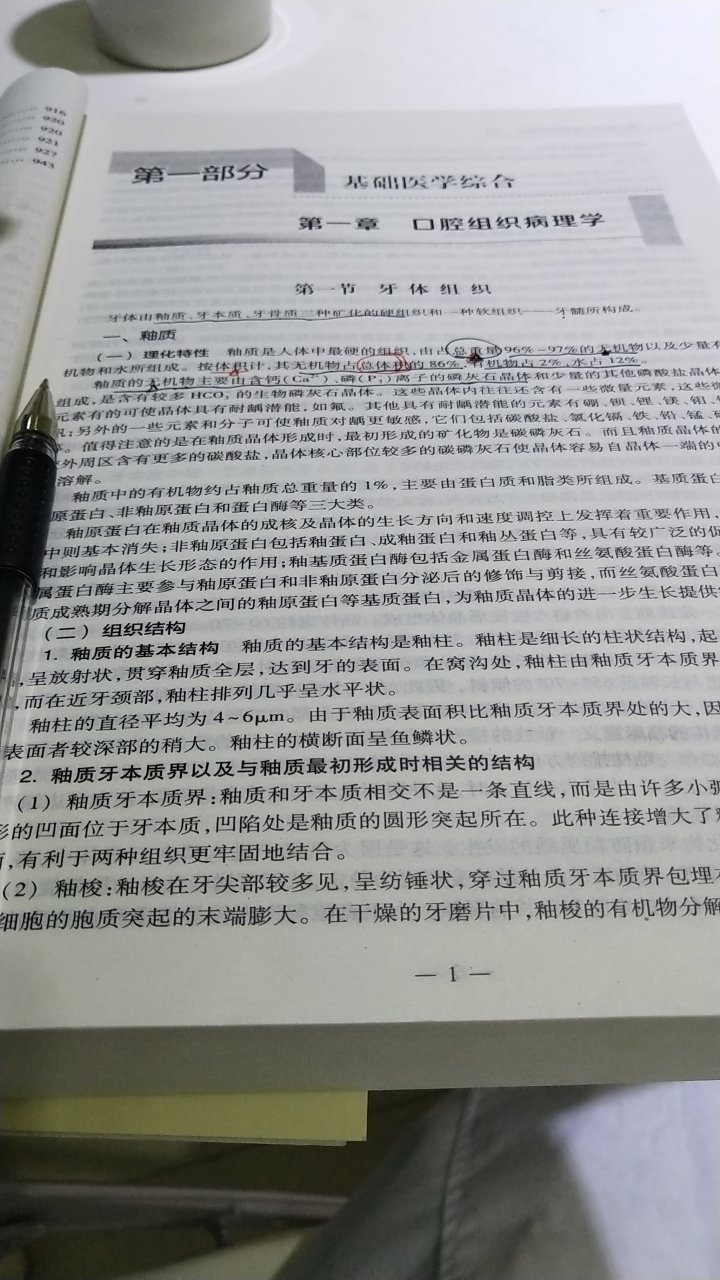 916
920
920
921
927
943
第一部分
基础医学综合
第一章 口腔组织病理学
第一节 牙体组织
牙体由釉质、牙本质、牙骨质三种矿化的硬组织和一种软组织——牙髓所构成。
一、釉质
(一) 理化特性 釉质是人体中最硬的组织,由占总重量96%~97%的无机物以及少量有
机物和水所组成。按体积计,其无机物占总体积的86%,有机物占2%,水占12%。
釉质的无机物主要由含钙(Ca²⁺)、磷(P)离子的磷灰石晶体和少量的其他磷酸盐晶体
组成,是含有较多HCO₃的生物磷灰石晶体。这些晶体内往往还含有一些微量元素,这些微
元素有的可使晶体具有耐龋潜能,如氟。其他具有耐龋潜能的元素有硼、钡、锂、镁、钼、
;另外的一些元素和分子可使釉质对龋更敏感,它们包括碳酸盐、氯化镉、铁、铅、锰、
。值得注意的是在釉质晶体形成时,最初形成的矿化物是碳磷灰石。而且釉质晶体的
外周区含有更多的碳酸盐,晶体核心部位较多的碳磷灰石使晶体容易自晶体一端的
溶解。
釉质中的有机物约占釉质总重量的1%,主要由蛋白质和脂类所组成。基质蛋白
原蛋白、非釉原蛋白和蛋白酶等三大类。
釉原蛋白在釉质晶体的成核及晶体的生长方向和速度调控上发挥着重要作用,
中则基本消失;非釉原蛋白包括釉蛋白、成釉蛋白和釉丛蛋白等,具有较广泛的
和影响晶体生长形态的作用;釉基质蛋白酶包括金属蛋白酶和丝氨酸蛋白酶等。
属蛋白酶主要参与釉原蛋白和非釉原蛋白分泌后的修饰与剪接,而丝氨酸蛋白
质成熟期分解晶体之间的釉原蛋白等基质蛋白,为釉质晶体的进一步生长提供
(二) 组织结构
1. 釉质的基本结构 釉质的基本结构是釉柱。釉柱是细长的柱状结构,起
,呈放射状,贯穿釉质全层,达到牙的表面。在窝沟处,釉柱由釉质牙本质界
,而在近牙颈部,釉柱排列几乎呈水平状。
釉柱的直径平均为4~6μm。由于釉质表面积比釉质牙本质界处的大,因
表面者较深部的稍大。釉柱的横断面呈鱼鳞状。
2. 釉质牙本质界以及与釉质最初形成时相关的结构
(1) 釉质牙本质界:釉质和牙本质相交不是一条直线,而是由许多小弧
形的凹面位于牙本质,凹陷处是釉质的圆形突起所在。此种连接增大了
,有利于两种组织更牢固地结合。
(2) 釉梭:釉梭在牙尖部较多见,呈纺锤状,穿过釉质牙本质界包埋
细胞的胞质突起的末端膨大。在干燥的牙磨片中,釉梭的有机物分解
— 1 —